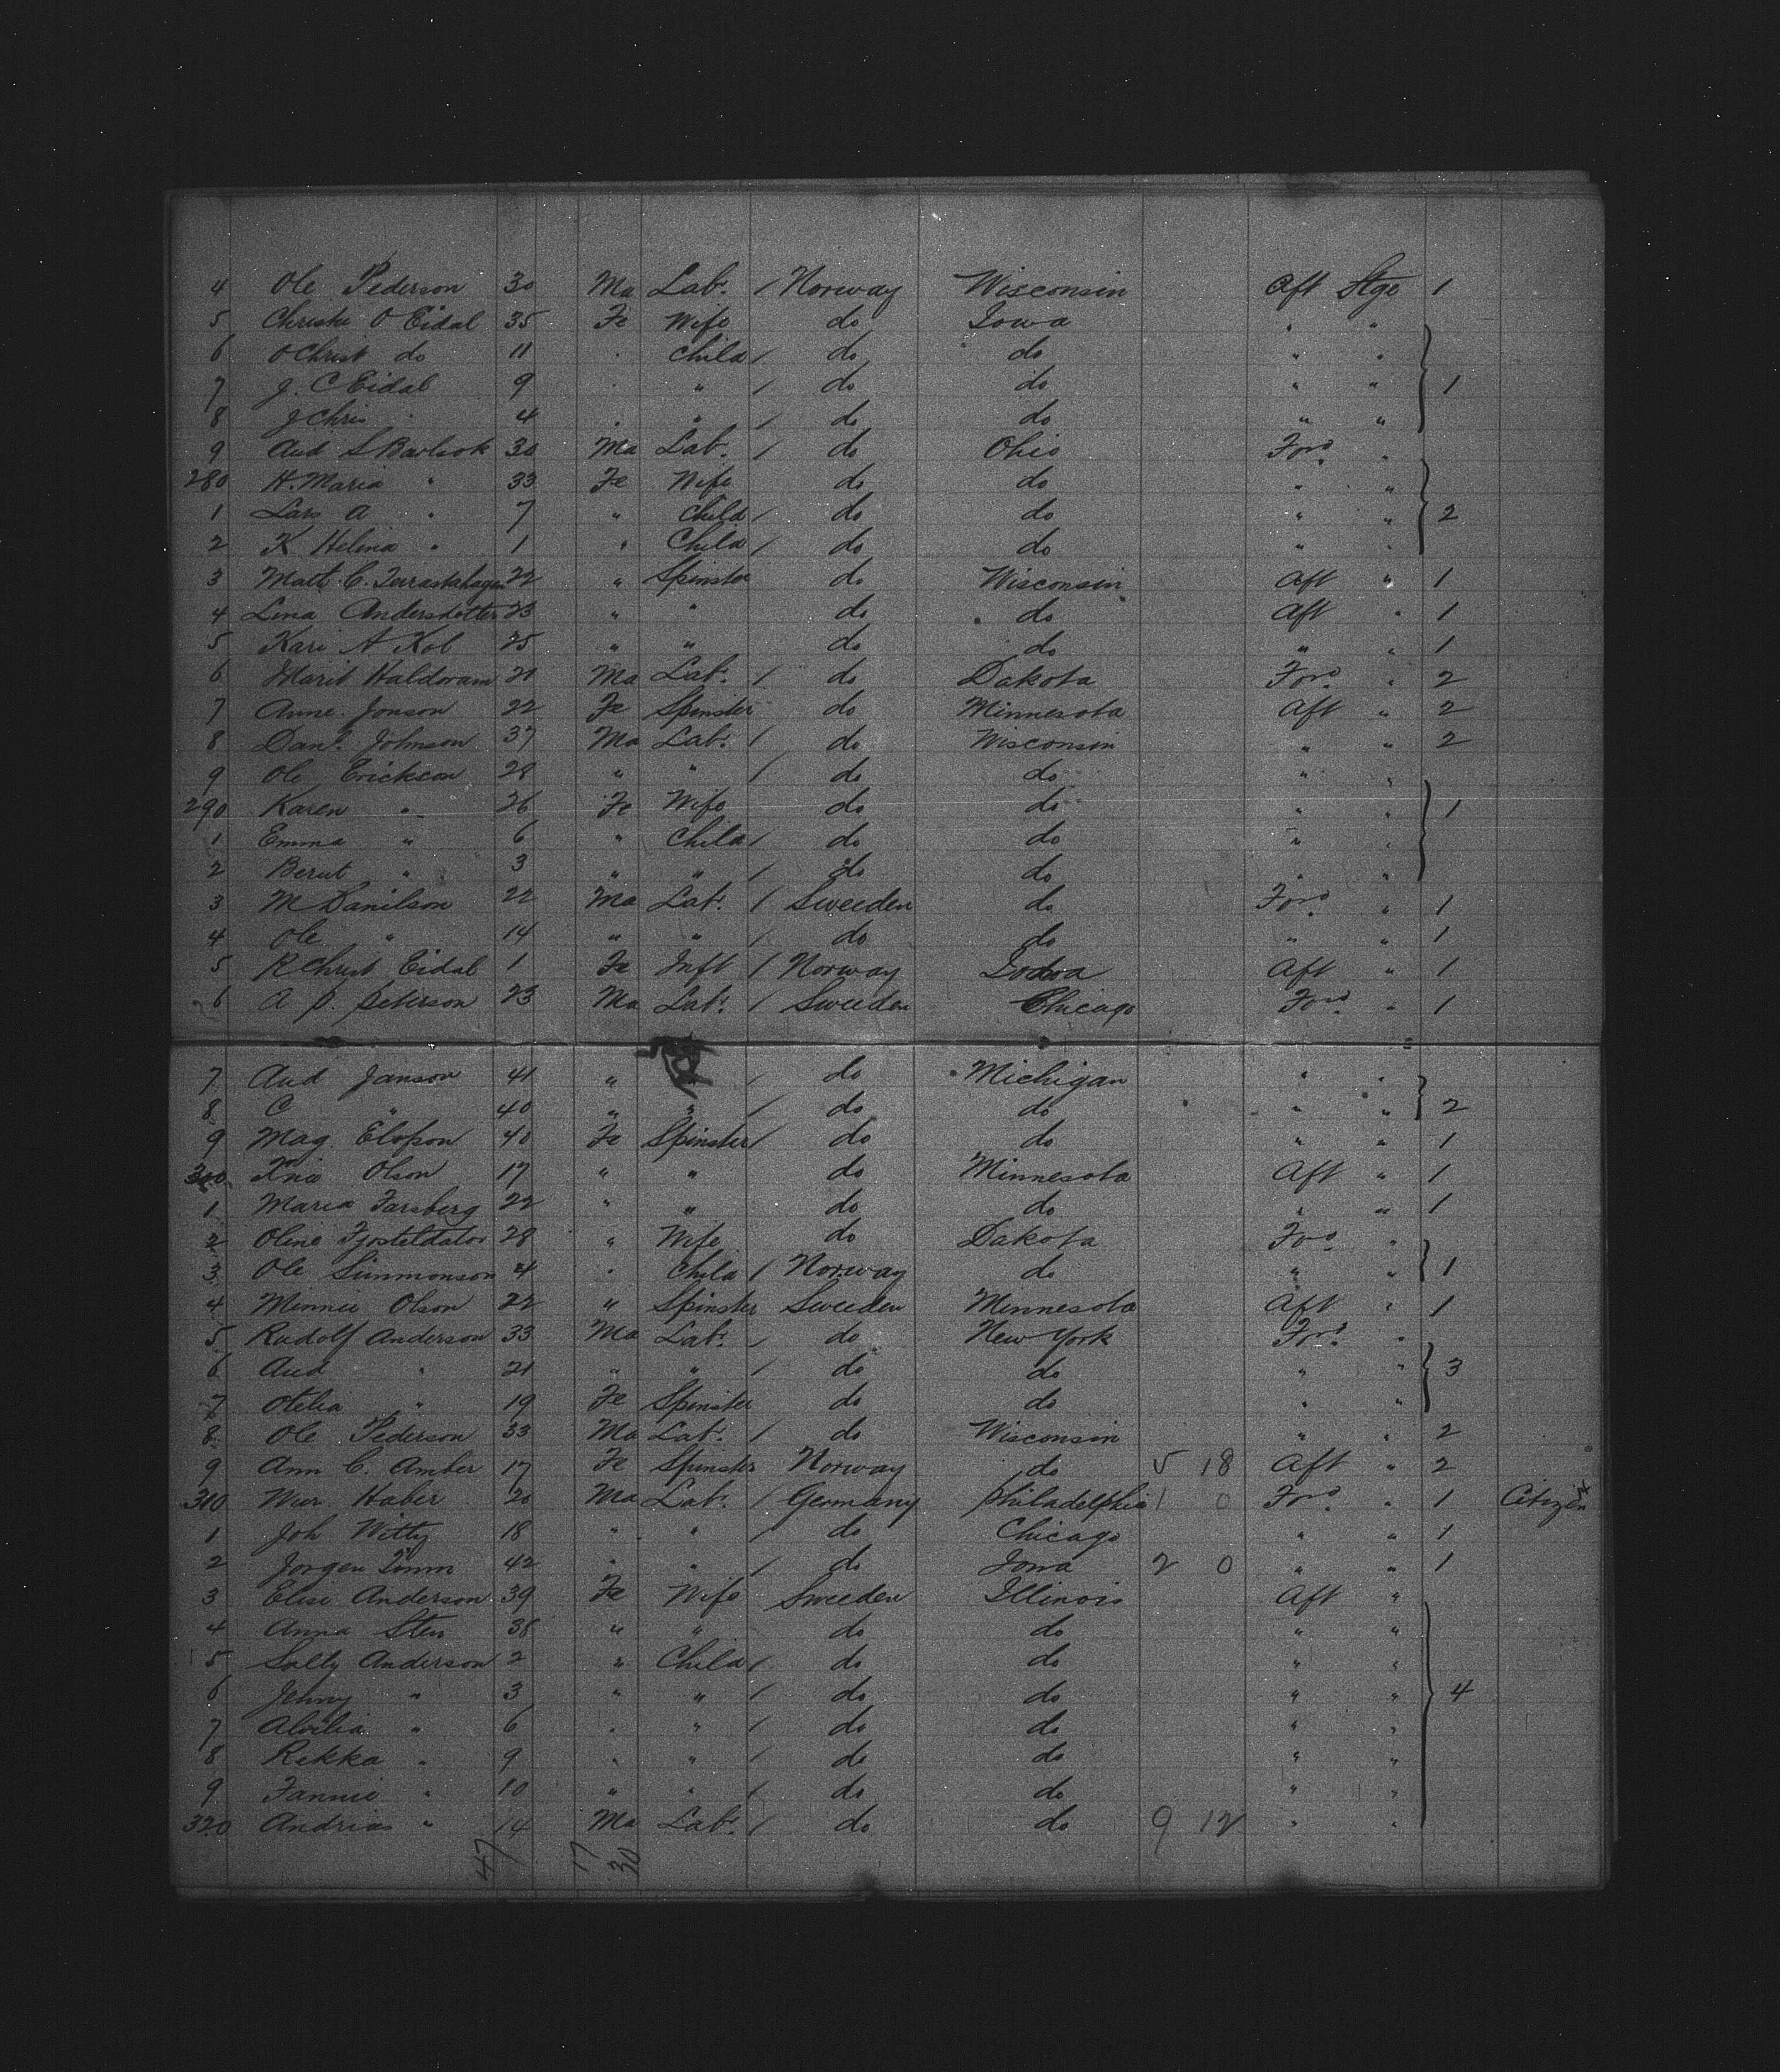 4 Ole Pederson 30 Ma Lab. / Norway Wisconsin Aft Stge 1
5 Christi O Eidal 35 Fe Wife do Iowa " "
6 O Christ do 11 " Child / do do " "
7 J. C Eidal 9 " " / do do " " 1
8 J Chris " 4 " " / do do " "
9 And S 30 Ma Lab. / do Ohio Ford "
280 H. Maria " 33 Fe Wife do do " "
1 Lars A " 7 " Child / do do " " 2
2 K Helina " 1 " Child / do do " "
3 Matt C. 22 " Spinster do Wisconsin Aft " 1
4 Lina Andersdotter 23 " " do do Aft " 1
5 Kari A Kob 25 " " do do " " 1
6 Marit 21 Ma Lab. / do Dakota Ford " 2
7 Anne Jonson 22 Fe Spinster do Minnesota Aft " 2
8 Danl. Johnson 37 Ma Lab. / do Wisconsin " " 2
9 Ole Erickson 28 " " / do do " "
290 Karen " 26 Fe Wife do do " " 1
1 Emma " 6 " Child / do do " "
2 Berut " 3 " " / do do " "
3 M Danilson 22 Ma Lab. / Sweeden do Ford " 1
4 Ole " 14 " " / do do " " 1
5 R Christ Eidal 1 Fe Inft / Norway Iowa Aft " 1
6 A P. Peterson 23 Ma Lab. / Sweeden Chicago Ford " 1
7 And Janson 41 " / do Michigan " "
8 C " 40 " " / do do " " 2
9 Mag 40 Fe Spinster / do do " " 1
300 Olson 17 " " do Minnesota Aft " 1
1 Maria Farsberg 22 " " do do " " 1
2 Oline 28 " Wife do Dakota Ford "
3 Ole Simmonson 4 " Child / Norway do " " 1
4 Minnie Olson 22 " Spinster Sweeden Minnesota Aft " 1
5 Rudolf Anderson 33 Ma Lab. / do New York Ford "
6 And " 21 " " / do do " " 3
7 Otilia " 19 Fe Spinster do do " "
8 Ole Pederson 33 Ma Lab. / do Wisconsin " " 2
9 Ann C. Amber 17 Fe Spinster Norway do 5 18 Aft " 2
310 Haber 20 Ma Lab. / Germany Philadelphia 1 0 Ford " 1 Citizen
1 Joh Witty 18 " " / do Chicago " " 1
2 Jorgen 42 " " / do Iowa 2 0 " " 1
3 Elise Anderson 39 Fe Wife Sweeden Illinois Aft "
4 Anna Sten 38 " " do do " "
5 Sally Anderson 2 " Child / do do " "
6 Jenny " 3 " " / do do " " 4
7 Alvilia " 6 " " / do do " "
8 Rikka " 9 " " / do do " "
9 Fannie " 10 " " / do do " "
320 Andrias " 14 Ma Lab. / do do 9 12 " "
47 17 30